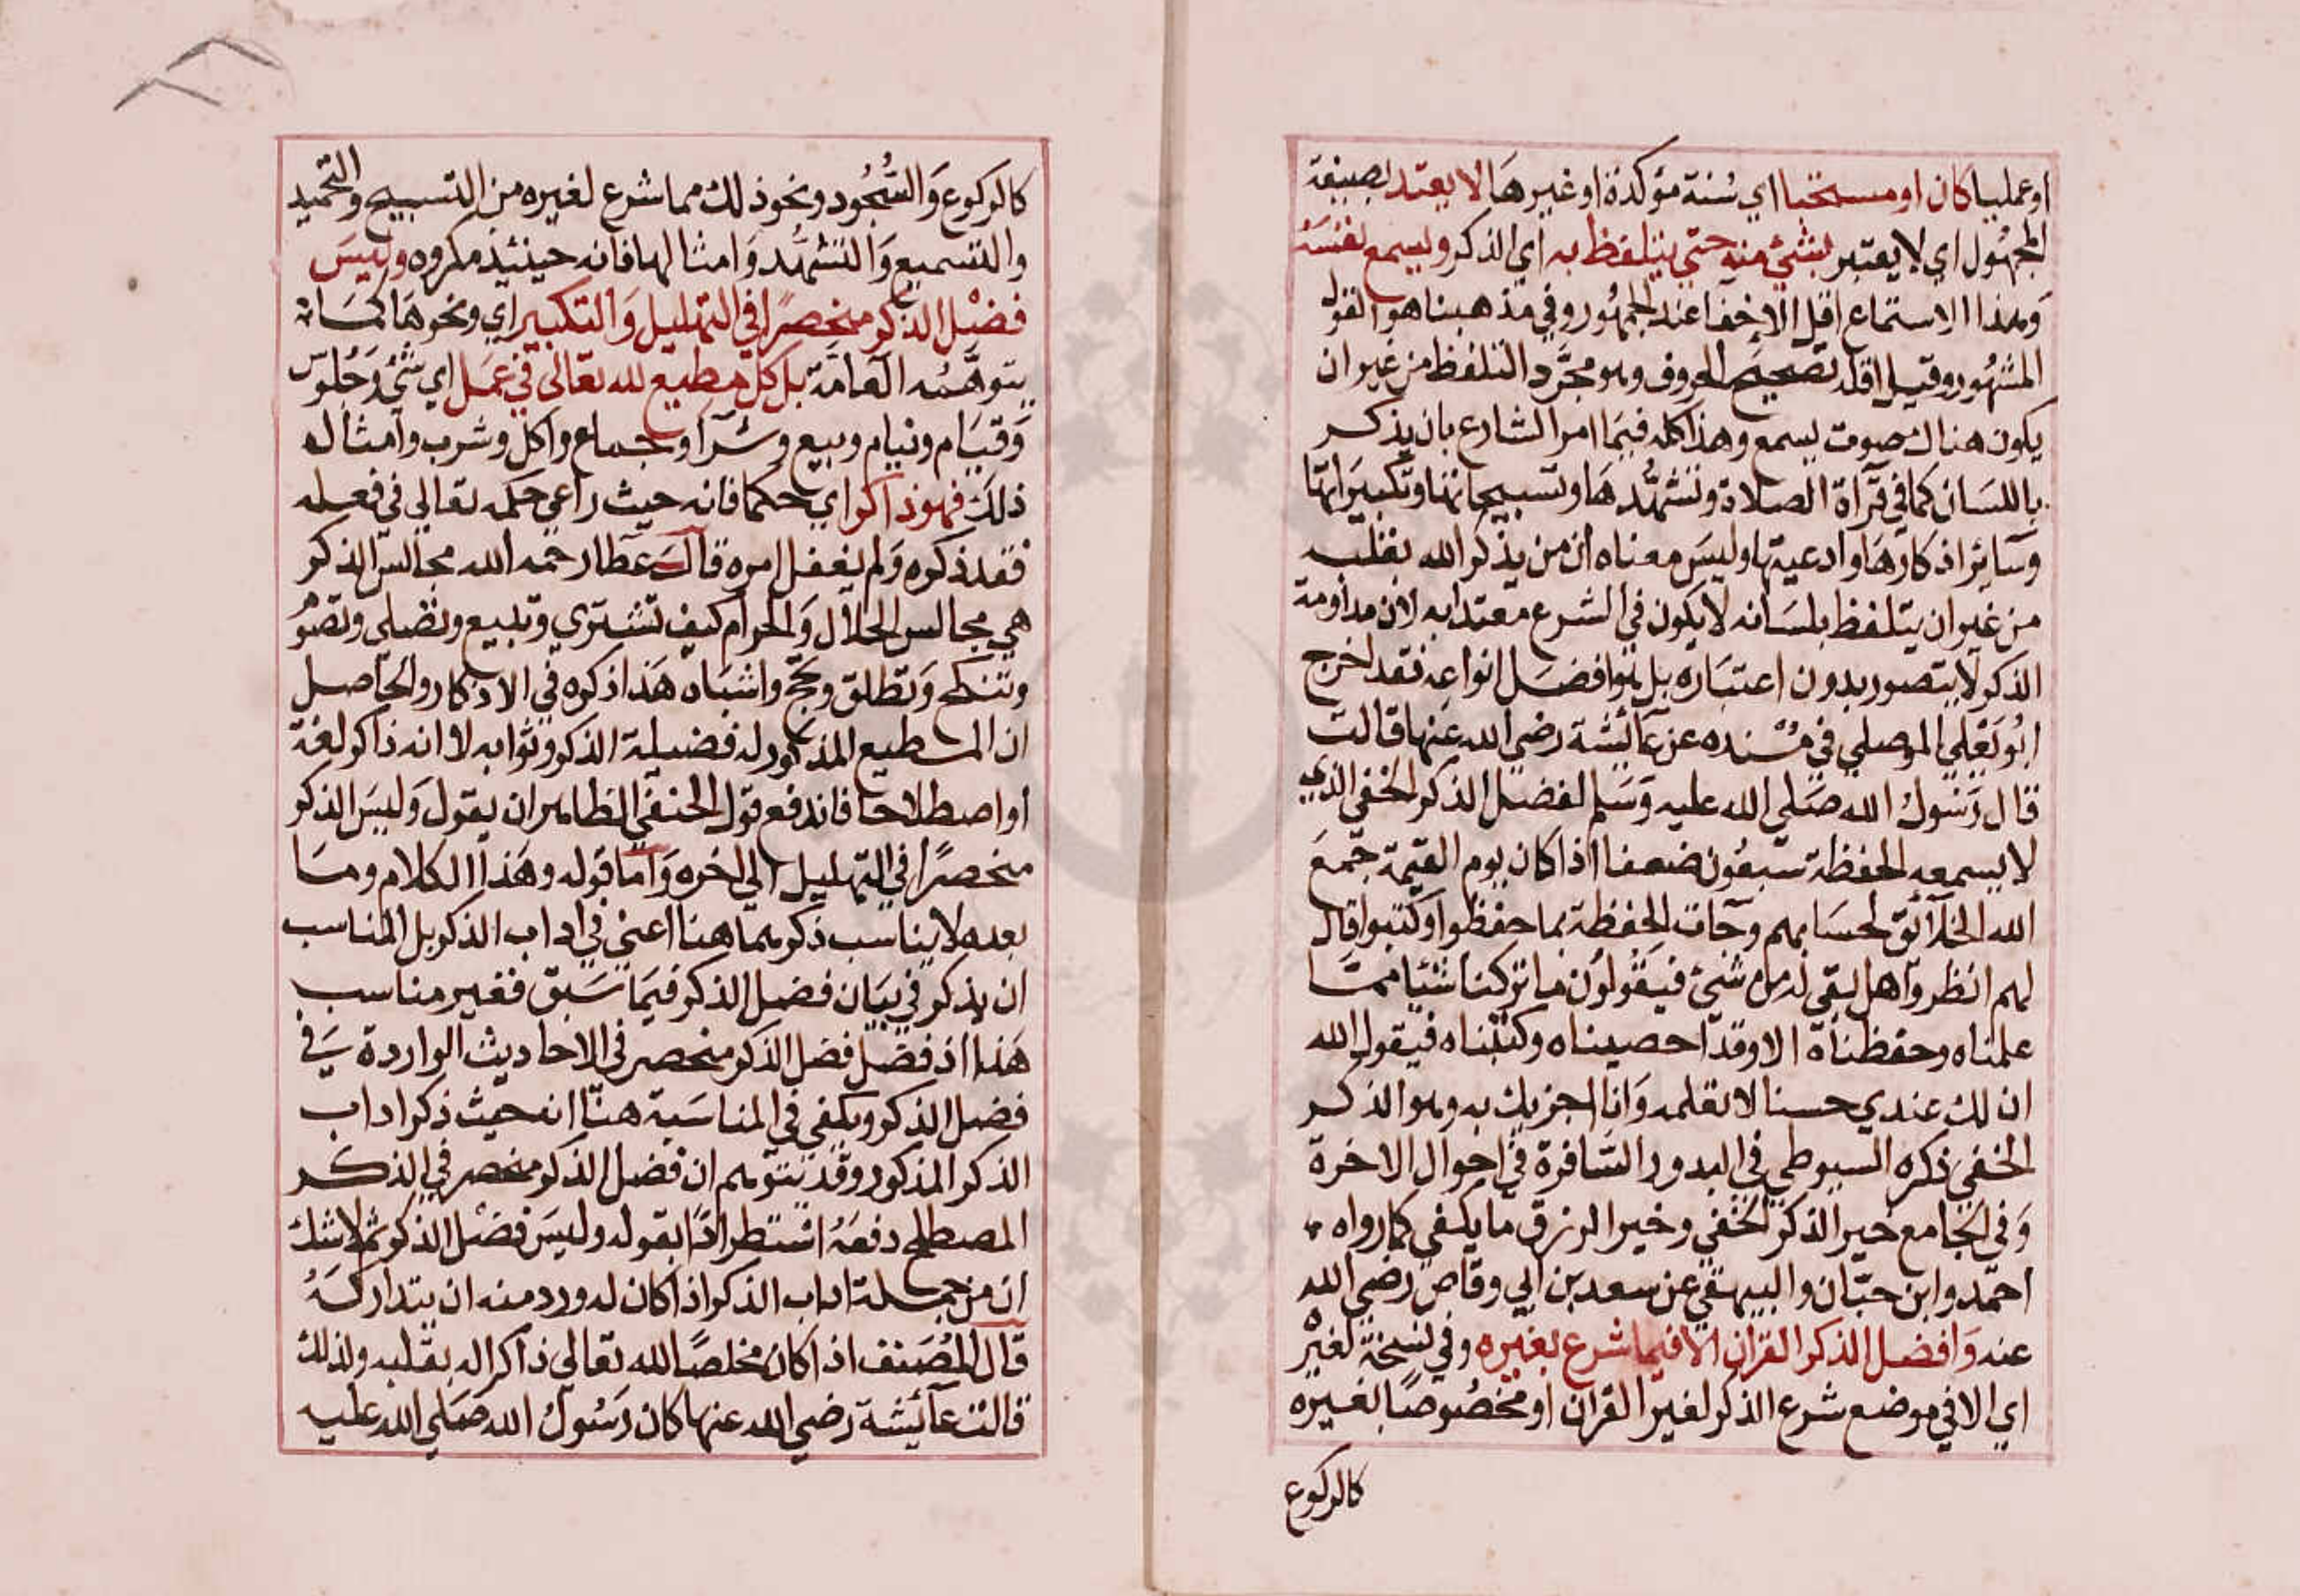 او عمليا كان او مستحبا اي سنة مؤكدة او غيرها لا يعتد بصيغة
المجهول اي لا يعتبر بشئ منه حتى يتلفظ به اي الذكر ويسمع نفسه
وهذا الاستماع اقل الاخفا عند الجمهور وفي مذهبنا هو القول
المشهور وقيل اقله تصحيح الحروف وهو مجرد التلفظ من غير ان
يكون هناك صوت يسمع وهذا كله فيما امر الشارع بان يذكر
باللسان كما في قرآة الصلاة وتشهدها وتسبيحاتها وتكبيراتها
وسآئر اذكارها وادعيتها وليس معناه ان من يذكر الله بقلبه
من غير ان يتلفظ بلسانه لا يكون في الشرع معتدا به لان مداومة
الذكر لا يتصور بدون اعتباره بل هو افضل انواعه فقد اخرج
ابو يعلي الموصلي في مسنده عن عآئشة رضي الله عنها قالت
قال رسول الله صلي الله عليه وسلم لفضل الذكر الخفي الذي
لا يسمعه الحفظة سبعون ضعفا اذا كان يوم القيمة جمع
الله الخلآئق لحسابهم وجات الحفظة بما حفظوا وكتبوا قال
لهم انظروا هل بقي له من شئ فيقولون ما تركنا شئيا مما
علمناه وحفظناه الا وقد احصيناه وكتبناه فيقول الله
ان لك عندي حسنا لا تعلمه وانا اجزيك به وهو الذكر
الخفي ذكره السيوطي في البدور السافرة في احوال الاخرة
وفي الجامع خير الذكر الخفي وخير الرزق ما يكفي كما رواه
احمد وابن حبان والبيهقي عن سعد بن ابي وقاص رضي الله
عنه وافضل الذكر القران الا فيما شرع بغيره وفي نسخة لغيره
اي الا في موضع شرع الذكر لغير القران او مخصوصا بغيره
كالركوع
كالركوع والسجود ونحو ذلك مما شرع لغيره من التسبيح والتحميد
والتسميع والتشهد وامثالها فانه حينئذ مكروه وليس
فضل الذكر منحصرا في التهليل والتكبير اي ونحوها كما
يتوهمه العامة بل كل مطيع لله تعالى في عمل اي شئ وجلوس
وقيام ونيام وبيع وشرآ وجماع واكل وشرب وامثال
ذلك فهو ذاكر اي حكما فانه حيث راعي حكمه تعالي في فعله
فقد ذكره ولم يغفل امره قال عطا رحمه الله مجالس الذكر
هي مجالس الحلال والحرام كيف تشتري وتبيع وتصلي وتصوم
وتنكح وتطلق وتحج واشباه هذا ذكره في الاذكار والحاصل
ان المطيع المذكور له فضيلة الذكر وثوابه لا انه ذاكر لغة
او اصطلاحا فاندفع قول الحنفي الظاهر ان يقول وليس الذكر
منحصرا في التهليل الي اخره واما قوله وهذا الكلام وما
بعده لا يناسب ذكرهما هنا اعني في اداب الذكر بل المناسب
ان يذكر في بيان فضل الذكر فيما سبق فغير مناسب
هذا اذ فضل فضل الذكر منحصر في الاحاديث الواردة في
فضل الذكر ويكفي في المناسبة هنا انه حيث ذكر اداب
الذكر المذكور وقد يتوهم ان فضل الذكر منحصر في الذكر
المصطلح دفعه استطرادا بقوله وليس فضل الذكر ثم لا شك
ان من جملة اداب الذكر اذا كان له ورد منه ان يتداركه
قال المصنف اذا كان مخلصا لله تعالي ذاكرا له بقلبه ولذلك
قالت عآئيشة رضي الله عنها كان رسول الله صلي الله عليه